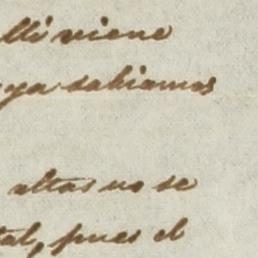 allí viene
ya sabiamos
altas no se
tal, pues el